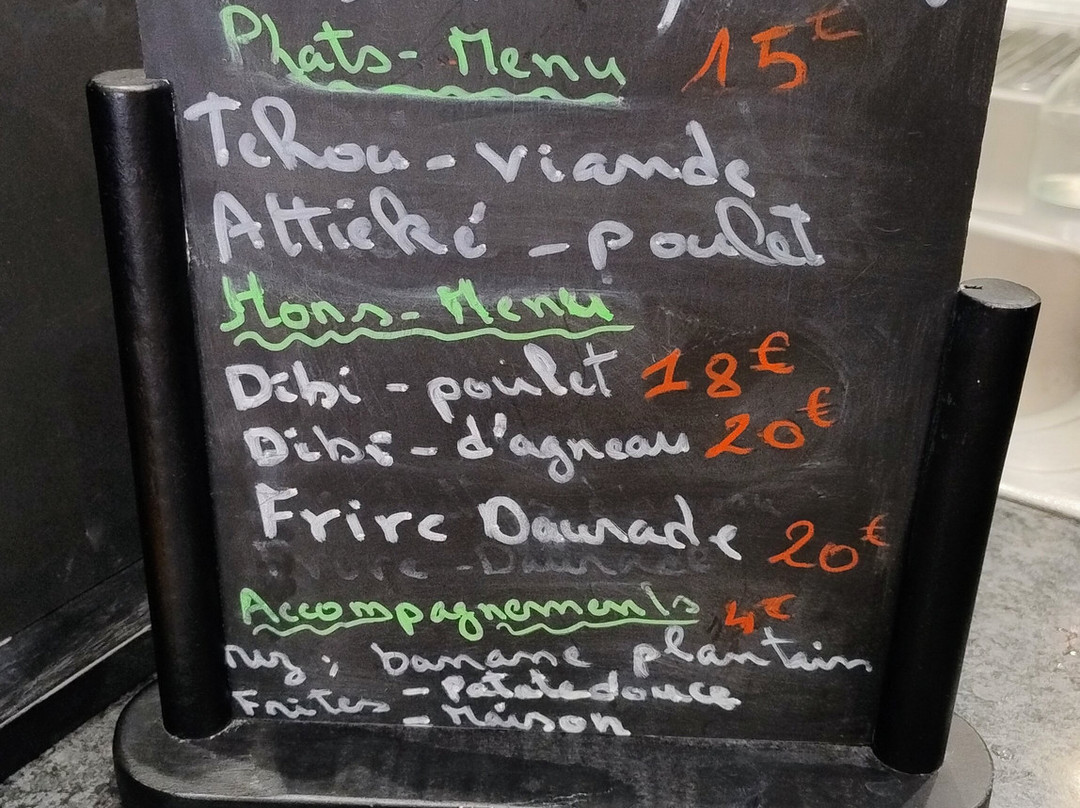 Phats-Menu 15€
Tchou-viande
Attiéké - poulet
Hons-Menu
Dibi - poulet 18€
Dibi - d'agneau 20€
Frire Daurade 20€
Accompagnements 4€
riz, banane plantain
Frites - Patate douce
- Maison